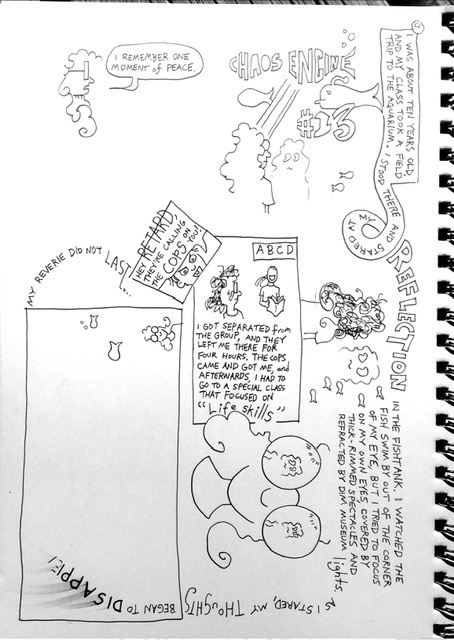 CHAOS ENGINE
#13
I REMEMBER ONE
MOMENT OF PEACE.
I WAS ABOUT TEN YEARS OLD
AND MY CLASS TOOK A FIELD
TRIP TO THE AQUARIUM. I STOOD THERE AND
STARED AT MY
REFLECTION
IN THE FISHTANK. I WATCHED THE
FISH SWIM BY OUT OF THE CORNER
OF MY EYE, BUT I TRIED TO FOCUS
ON MY OWN EYES, COVERED BY
THICK-RIMMED SPECTACLES AND
REFRACTED BY DIM MUSEUM lights.
AS I STARED, MY THOUGHTS
BEGAN TO DISAPPE
MY REVERIE DID NOT LAST...
HEY RETARD,
THEY'RE CALLING
THE COPS ON
YOU!
ABCD
I GOT SEPARATED from
THE GROUP, AND THEY
LEFT ME THERE FOR
FOUR HOURS. THE COPS
CAME AND GOT ME, and
AFTERWARDS, I HAD TO
GO TO A SPECIAL CLASS
THAT FOCUSED ON
"Life skills"